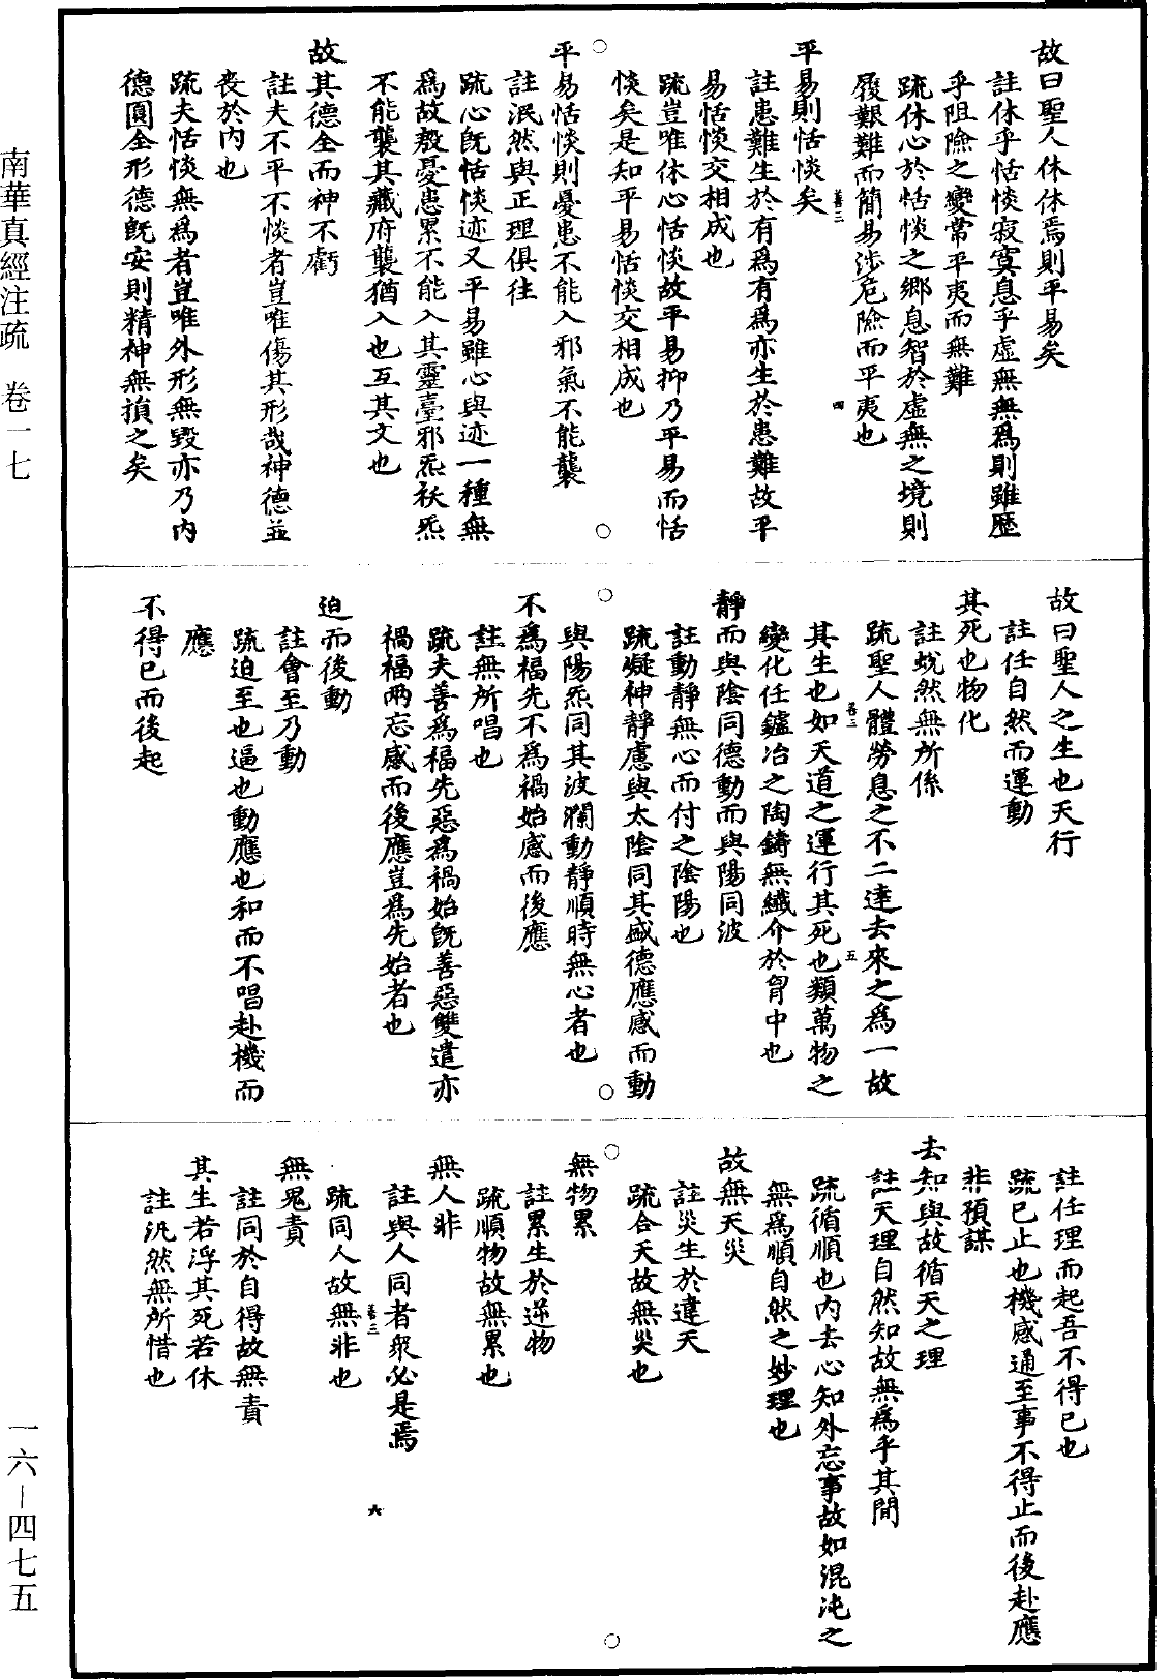 故曰聖人休休焉則平易矣
註休乎恬惔寂寞息乎虛無無爲則雖歷
乎阻險之變常平夷而無難
疏休心於恬惔之鄉息智於虛無之境則
履艱難而簡易涉危險而平夷也
善三
四
平易則恬惔矣
註患難生於有爲有爲亦生於患難故平
易恬惔交相成也
疏豈唯休心恬惔故平易抑乃平易而恬
惔矣是知平易恬惔交相成也
平易恬惔則憂患不能入邪氣不能襲
註泯然與正理俱往
疏心旣恬惔迹又平易雖心與迹一種無
爲故殷憂患累不能入其靈臺邪炁祅炁
不能襲其藏府襲猶入也互其文也
故其德全而神不虧
註夫不平不惔者豈唯傷其形哉神德並
丧於內也
疏夫恬惔無爲者豈唯外形無毀亦乃內
德圓全形德旣安則精神無損之矣
故曰聖人之生也天行
註任自然而運動
其死也物化
註蛻然無所係
疏聖人體勞息之不二達去來之爲一故
善三
五
其生也如天道之運行其死也類萬物之
變化任鑪冶之陶鑄無纖介於胷中也
靜而與陰同德動而與陽同波
註動靜無心而付之陰陽也
疏凝神靜慮與太陰同其盛德應感而動
與陽炁同其波瀾動靜順時無心者也
不爲福先不爲禍始感而後應
註無所唱也
疏夫善爲福先惡爲禍始旣善惡雙遣亦
禍福兩忘感而後應豈爲先始者也
迫而後動
註會至乃動
疏迫至也逼也動應也和而不唱赴機而
應
不得已而後起
註任理而起吾不得已也
疏已止也機感通至事不得止而後赴應
非預謀
去知與故循天之理
註天理自然知故無爲乎其間
疏循順也內去心知外忘事故如混沌之
無爲順自然之妙理也
故無天災
註災生於違天
疏合天故無災也
無物累
註累生於逆物
疏順物故無累也
無人非
註與人同者眾必是焉
善三
六
疏同人故無非也
無鬼責
註同於自得故無責
其生若浮其死若休
註汎然無所惜也
南華真經注疏　卷一七
一六－四七五